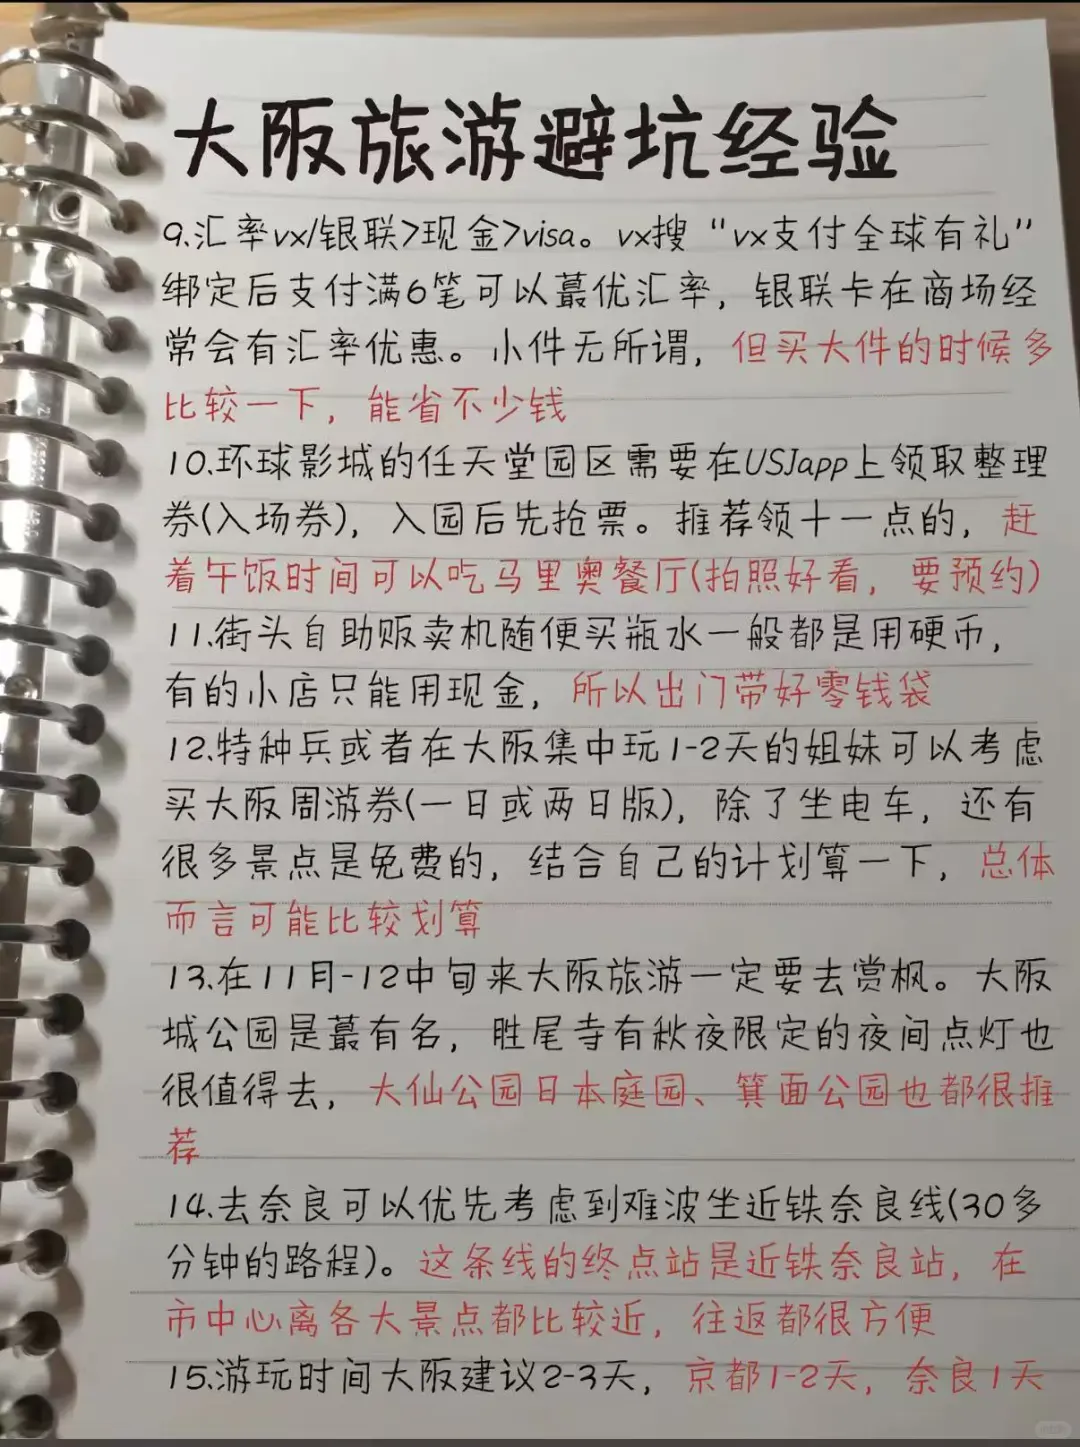 大阪旅游避坑经验
9.汇率vx/银联>现金>visa。vx搜“vx支付全球有礼”
绑定后支付满6笔可以蕞优汇率，银联卡在商场经
常会有汇率优惠。小件无所谓，但买大件的时候多
比较一下，能省不少钱
10.环球影城的任天堂园区需要在USJapp上领取整理
券(入场券)，入园后先抢票。推荐领十一点的，赶
着午饭时间可以吃马里奥餐厅(拍照好看，要预约)
11.街头自助贩卖机随便买瓶水一般都是用硬币，
有的小店只能用现金，所以出门带好零钱袋
12.特种兵或者在大阪集中玩1-2天的姐妹可以考虑
买大阪周游券(一日或两日版)，除了坐电车，还有
很多景点是免费的，结合自己的计划算一下，总体
而言可能比较划算
13.在11月-12中旬来大阪旅游一定要去赏枫。大阪
城公园是蕞有名，胜尾寺有秋夜限定的夜间点灯也
很值得去，大仙公园日本庭园、箕面公园也都很推
荐
14.去奈良可以优先考虑到难波坐近铁奈良线(30多
分钟的路程)。这条线的终点站是近铁奈良站，在
市中心离各大景点都比较近，往返都很方便
15.游玩时间大阪建议2-3天，京都1-2天，奈良1天